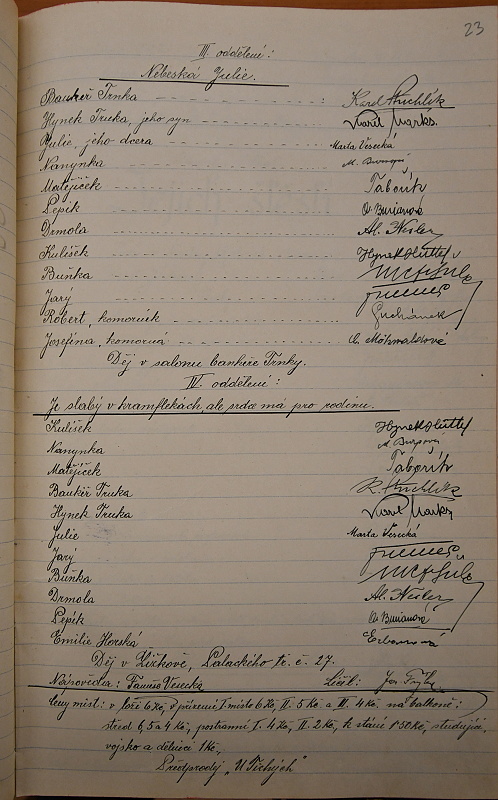 23
III oddělení:
Nebeská Julie.
Bankéř Trnka - - - : Karel Kuchlík
Hynek Trnka, jeho syn - - - Karel Marks.
Julie, jeho dcera - - - Marta Vesecká
Nanynka - - - M.
Matějíček - - - Táborík
Pepík - - - A. Burianová
Drmola - - - Al. Nesler
Kulíšek - - - Hynek Hüttel
Buňka - - -
Jarý - - -
Robert, komorník - - - Suchánek
Josefína, komorná - - - Mohwaldové
Děj v salonu bankéře Trnky.
IV. oddělení:
Je slabý v kramflekách, ale srdce má pro rodinu.
Kulíšek Hynek Hüttel
Nanynka M.
Matějíček Táborík
Bankéř Trnka K. Kuchlík
Hynek Trnka Karel Marks
Julie Marta Vesecká
Jarý
Buňka
Drmola Al. Nesler
Pepík A. Burianová
Emilie Horská
Děj v Žižkově, Palackého tř. č. 27.
Nápověda: Vesecká Líčil: Jos.
Ceny míst: v loži 6 Kč, v přízemí I. místo 6 Kč, II. 5 Kč a III. 4 Kč, na balkoně:
střed 6, 5 a 4 Kč, postranní I. 4 Kč, II. 2 Kč, k stání 1·50 Kč, studující,
vojsko a dělníci 1 Kč.
Předprodej „U Tichých"